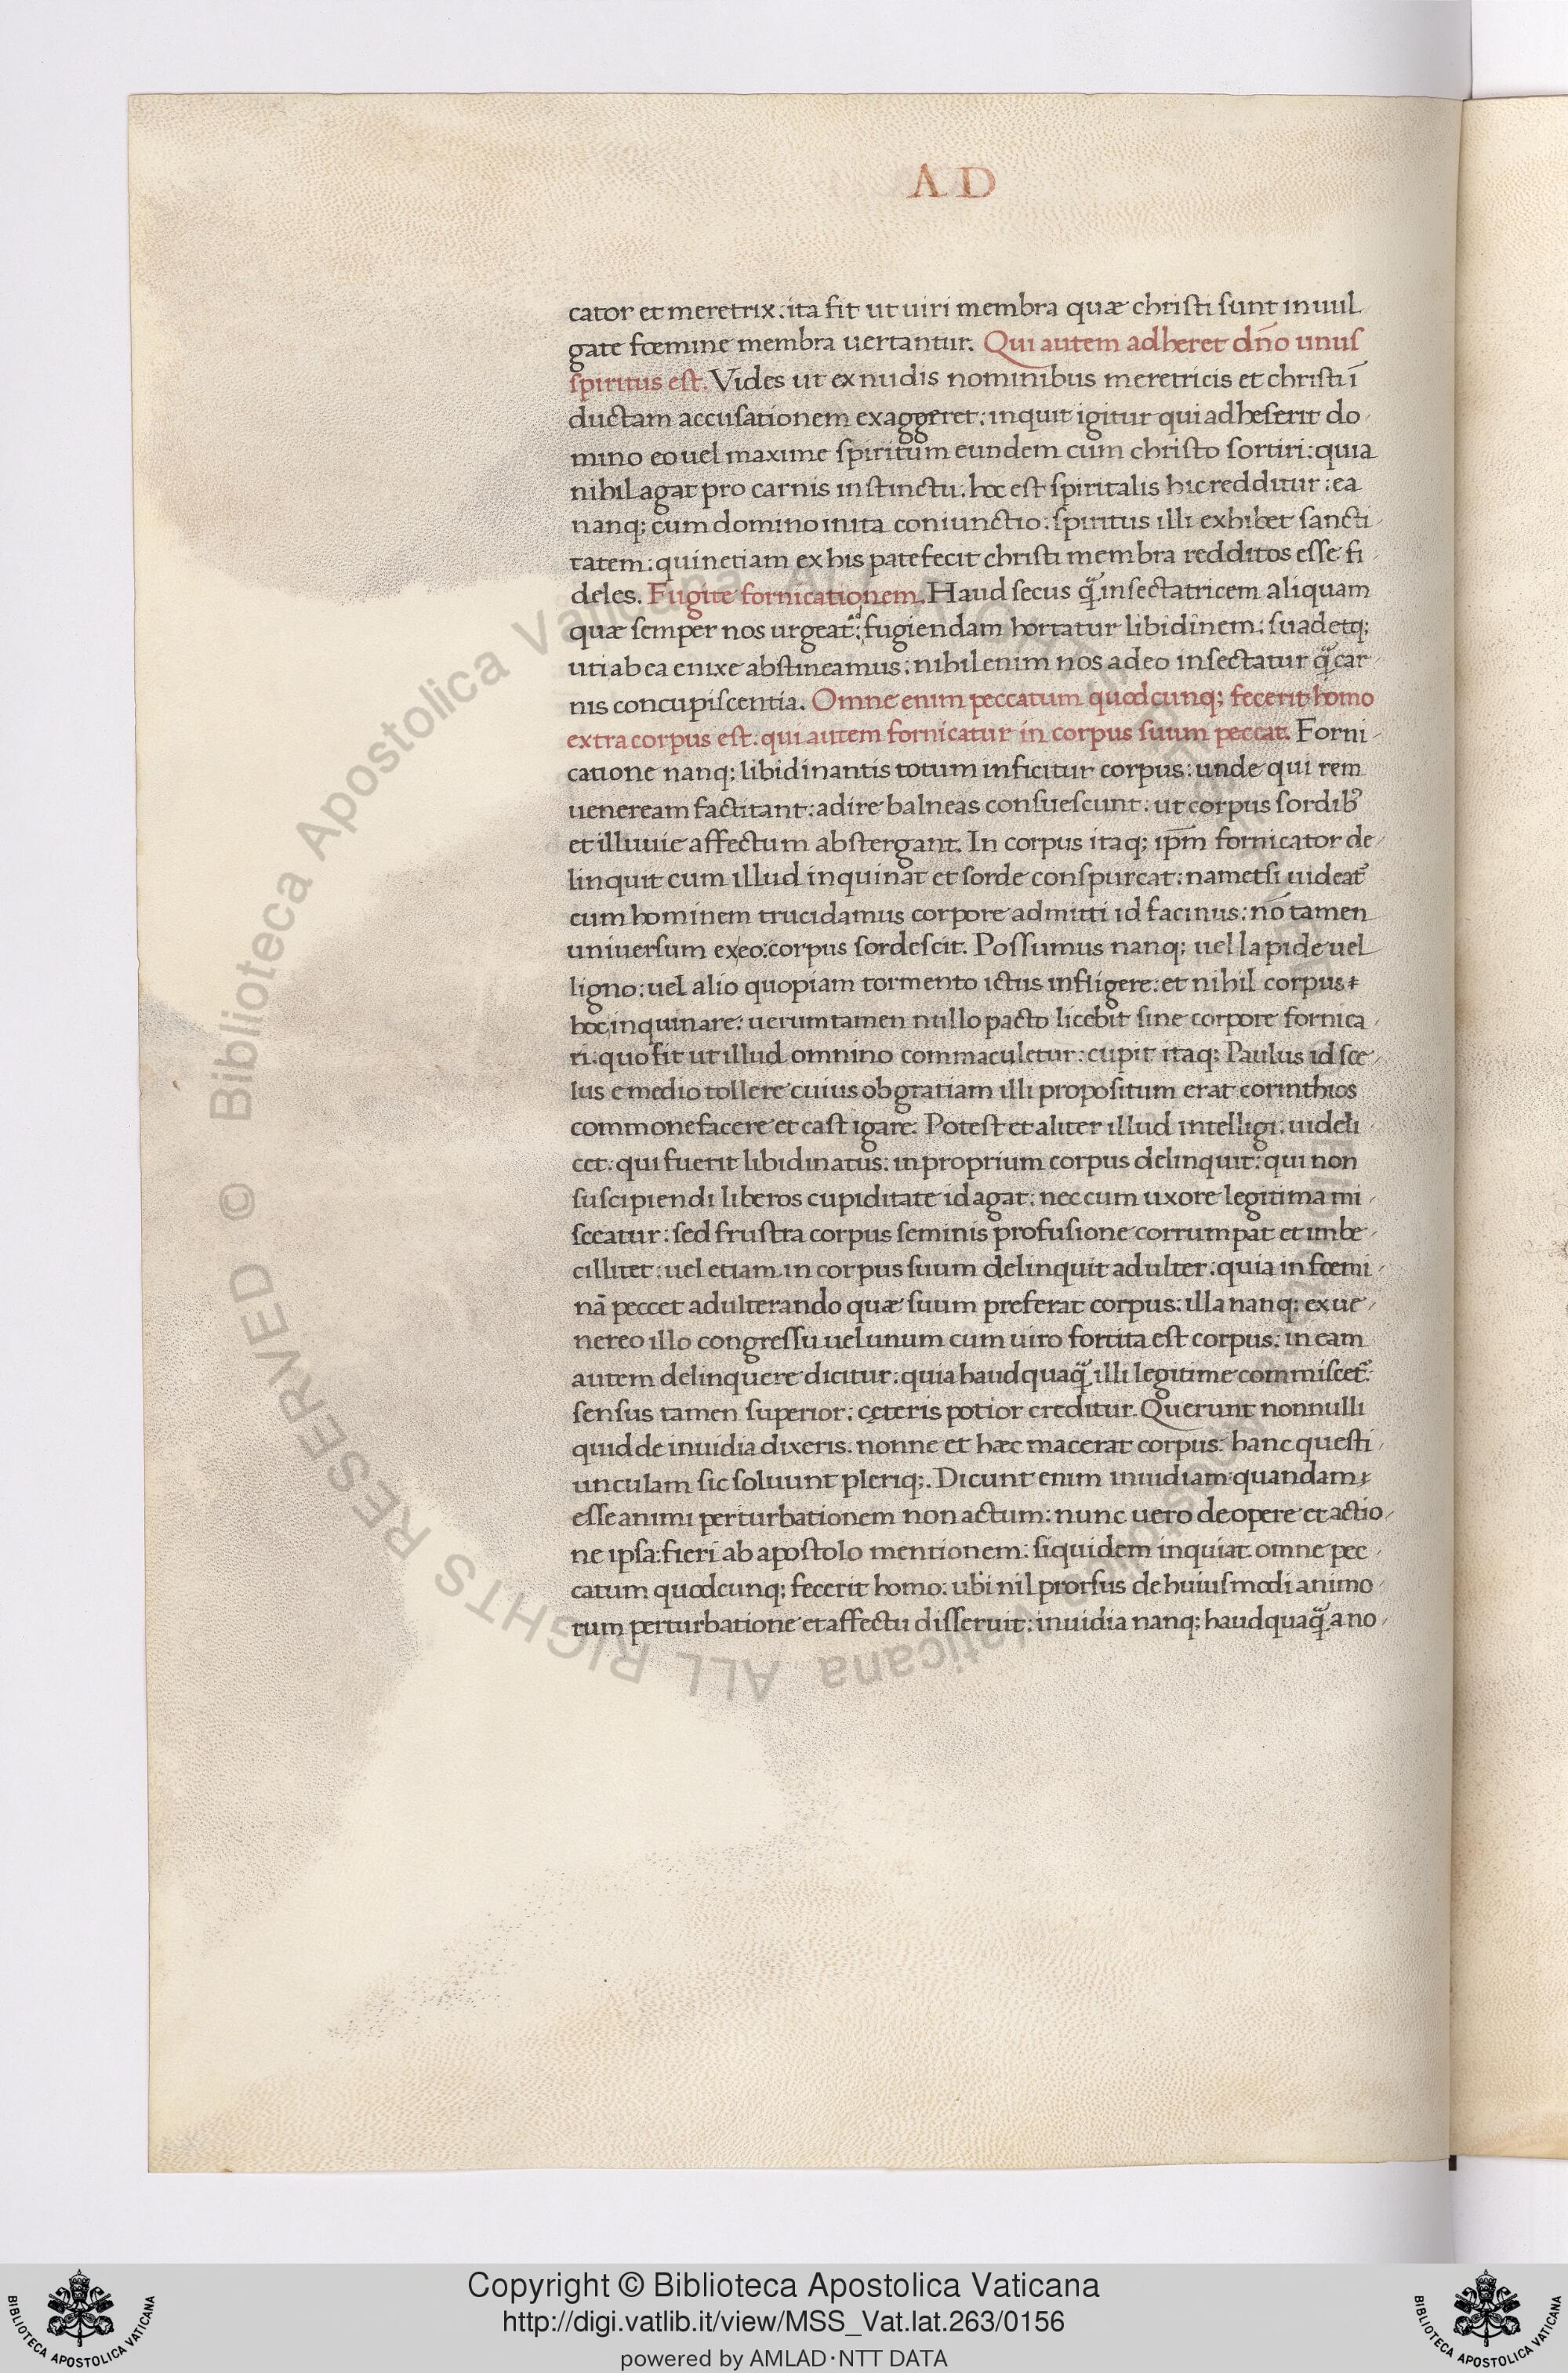 A D
cator et meretrix: ita fit ut uiri membra quæ christi sunt in uul
gate fœmine membra uertantur. Qui autem adheret dn̄o unus
spiritus est. Vides ut ex nudis nominibus meretricis et christi ī
ductam accusationem exaggeret: inquit igitur qui adheserit do
mino eo uel maxime spiritum eundem cum christo sortiri: quia
nihil agat pro carnis instinctu. hoc est spiritalis hic redditur: ea
nanq; cum domino inita coniunctio: spiritus illi exhibet sancti
tatem: quinetiam ex his patefecit christi membra redditos esse fi
deles. Fugite fornicationem. Haud secus q̃ insectatricem aliquam
quæ semper nos urgeat: fugiendam hortatur libidinem: suadetq;
uti ab ea enixe abstineamus: nihil enim nos adeo insectatur q̃ car
nis concupiscentia. Omne enim peccatum quodcunq; fecerit homo
extra corpus est: qui autem fornicatur in corpus suum peccat. Forni
catione nanq; libidinantis totum inficitur corpus: unde qui rem
ueneream factitant: adire balneas consuescunt: ut corpus sordib᾽
et illuuie affectum abstergant. In corpus itaq; ip̄m fornicator de
linquit cum illud inquinat et sorde conspurcat: nametsi uideat᾽
cum hominem trucidamus corpore admitti id facinus: nō tamen
uniuersum ex eo: corpus sordescit. Possumus nanq; uel lapide uel
ligno: uel alio quopiam tormento ictus infligere: et nihil corpus
hoc inquinare: uerumtamen nullo pacto licebit sine corpore fornica
ri: quo fit ut illud omnino commaculetur: cupit itaq; Paulus id sce
lus e medio tollere cuius ob gratiam illi propositum erat corinthios
commonefacere et castigare. Potest et aliter illud intelligi: uideli
cet: qui fuerit libidinatus: in proprium corpus delinquit: qui non
suscipiendi liberos cupiditate id agat: nec cum uxore legitima mi
sceatur: sed frustra corpus seminis profusione corrumpat et imbe
cillitet: uel etiam in corpus suum delinquit adulter: quia in fœmi
nā peccet adulterando quæ suum preferat corpus: illa nanq; ex ue
nereo illo congressu uel unum cum uiro sortita est corpus: in eam
autem delinquere dicitur: quia haudquaq̃ illi legitime commiscet᾽:
sensus tamen superior: cęteris potior creditur. Querunt nonnulli
quid de inuidia dixeris. nonne et hæc macerat corpus: hanc questi
unculam sic soluunt pleriq;. Dicunt enim inuidiam quandam
esse animi perturbationem non actum: nunc uero de opere et actio
ne ipsa: fieri ab apostolo mentionem: siquidem inquiat omne pec
catum quodcunq; fecerit homo: ubi nil prorsus de huiusmodi animo
rum perturbatione et affectu disseruit: inuidia nanq; haudquaq̃ a no
© Biblioteca Apostolica Vaticana ALL RIGHTS RESERVED
Copyright © Biblioteca Apostolica Vaticana
http://digi.vatlib.it/view/MSS_Vat.lat.263/0156
powered by AMLAD·NTT DATA
BIBLIOTECA APOSTOLICA VATICANA
BIBLIOTECA APOSTOLICA VATICANA